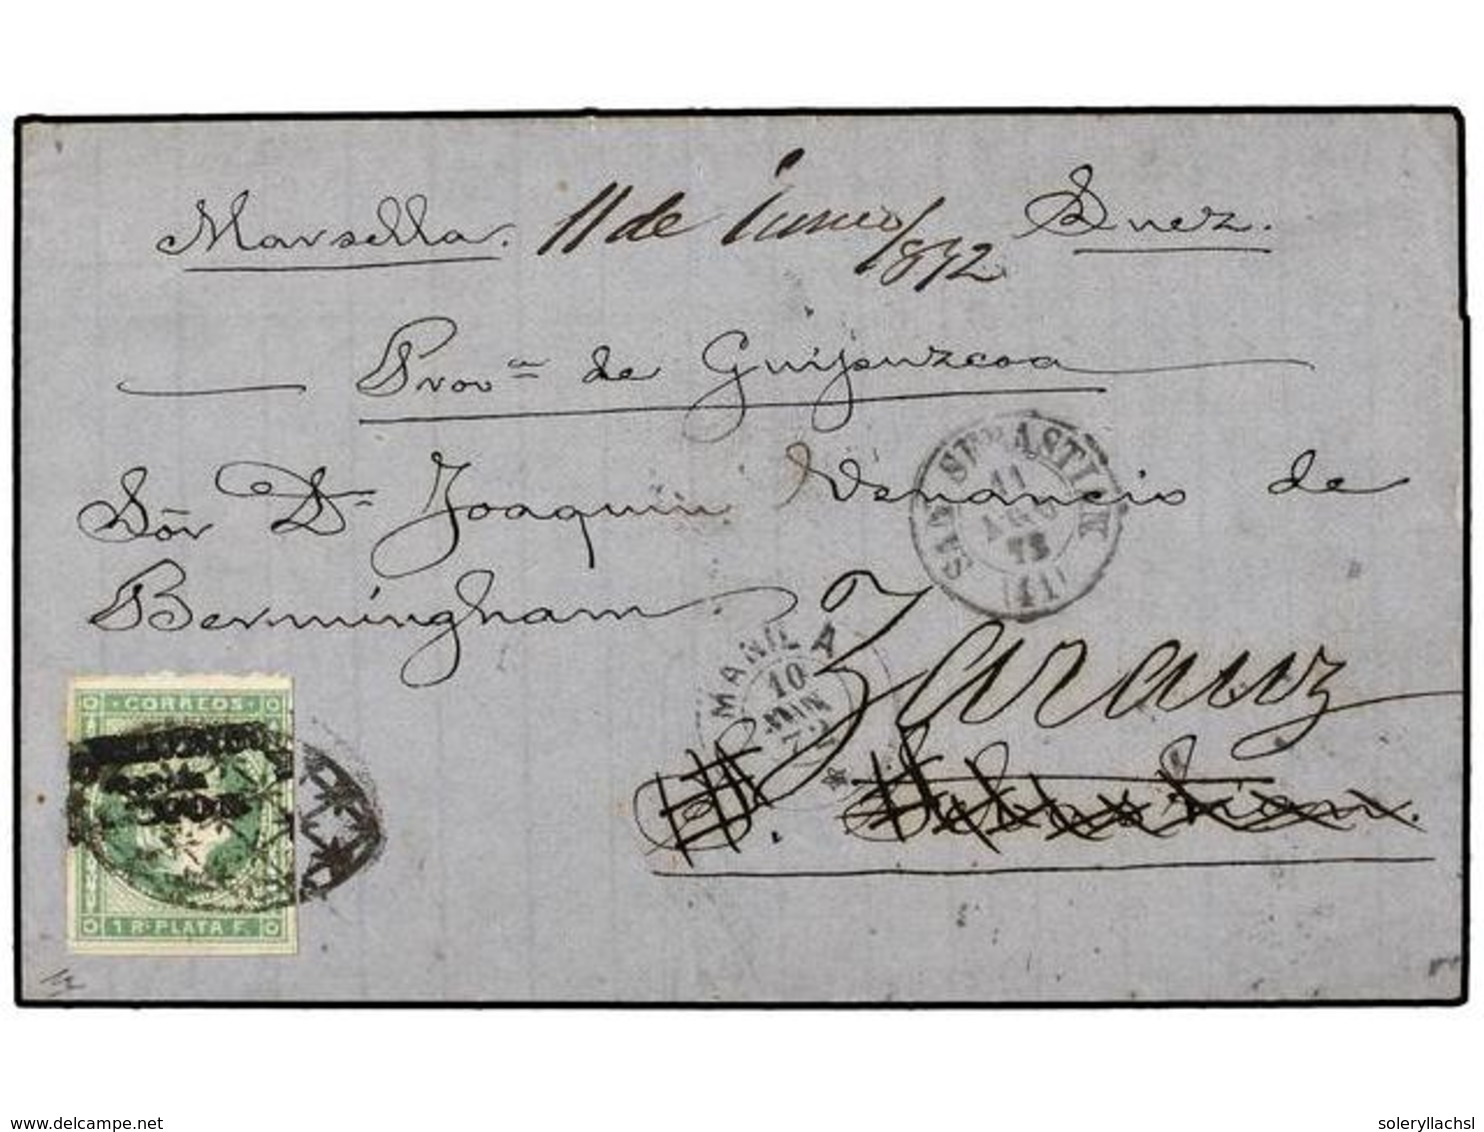 Marsella. 11 de Junio/1872 Suez.
Prov.ª de Guipuzcoa
Sōr Dn Joaquin Venancio de
Bermingham.
Zarauz
S. Sebastian.
SAN SEBASTIAN
11
AGO
72
(11)
MANILA
10
JUN
72
CORREOS
1 Rl PLATA F.
www.delcampe.net
soleryllachsl